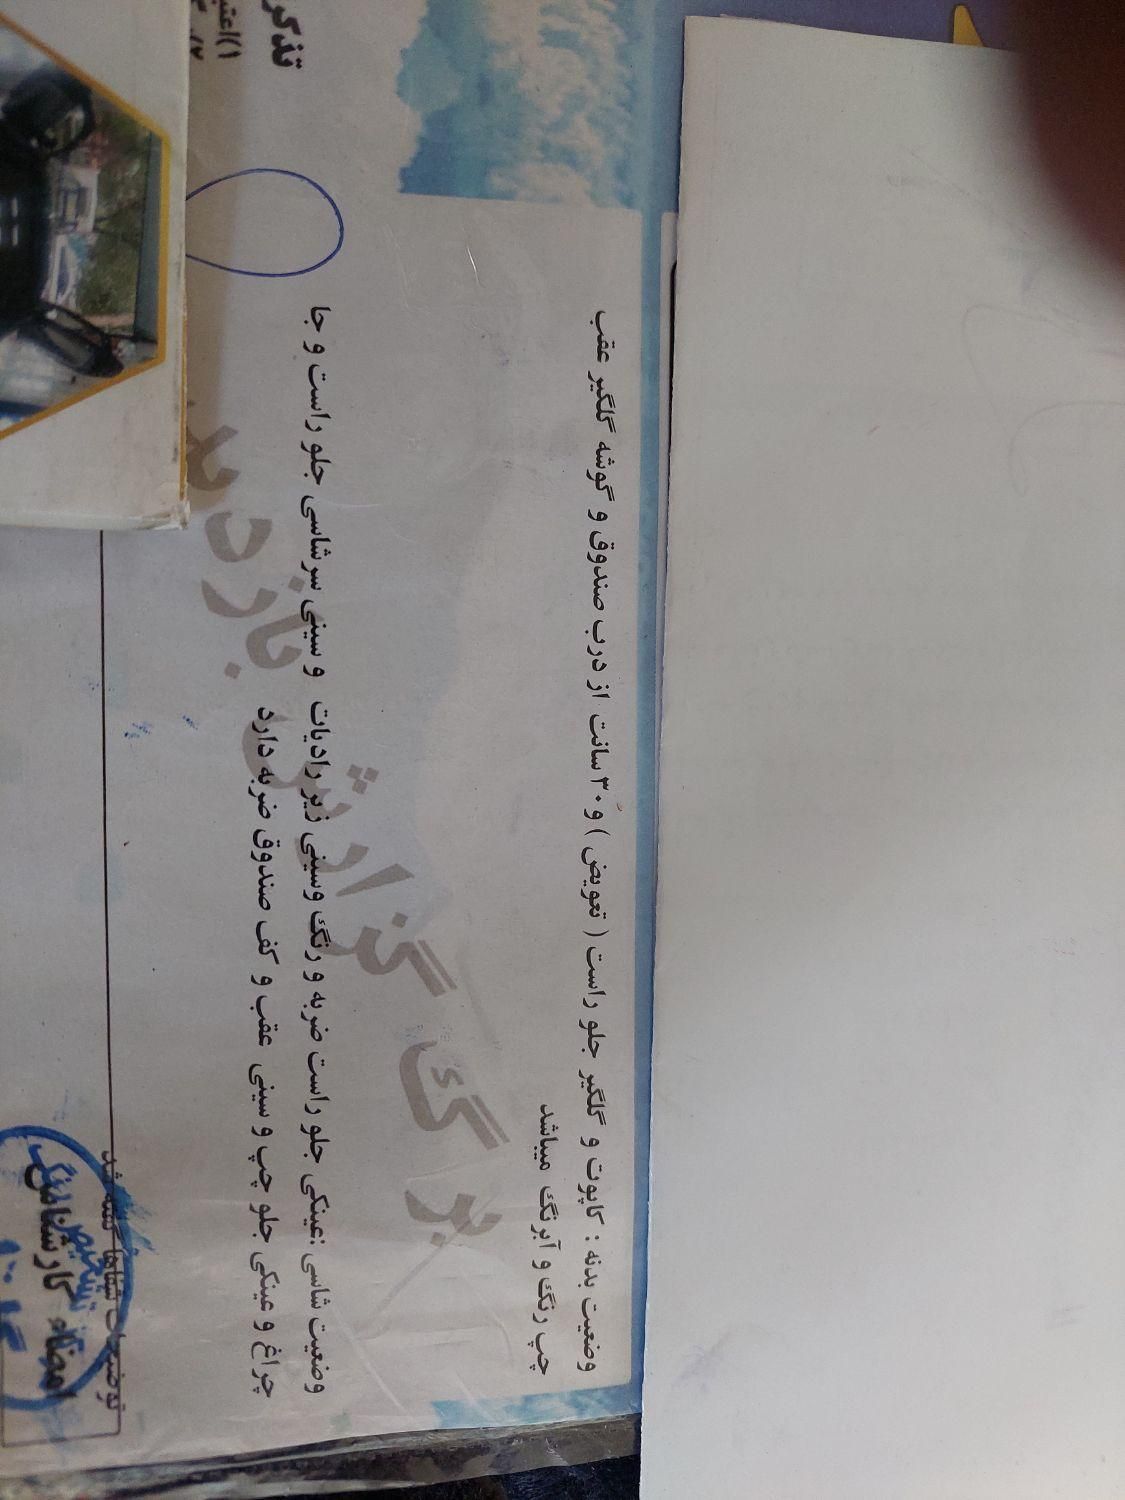 وضعیت بدنه : کاپوت و گلگیر جلو راست ( تعویض ) و ۳۰ سانت از درب صندوق و گوشه گلگیر عقب
چپ رنگ و آبرنگ میباشد
وضعیت شاسی :عینکی جلو راست ضربه و رنگ وسینی زیر رادیات و سینی سرشاسی جلو راست و جا
چراغ و عینکی جلو چپ و سینی عقب و کف صندوق ضربه دارد
برگ گزارش بازدید
توضیحات شفاها گفته شد
امضاء کارشناس
تذکر
۱)اعتب